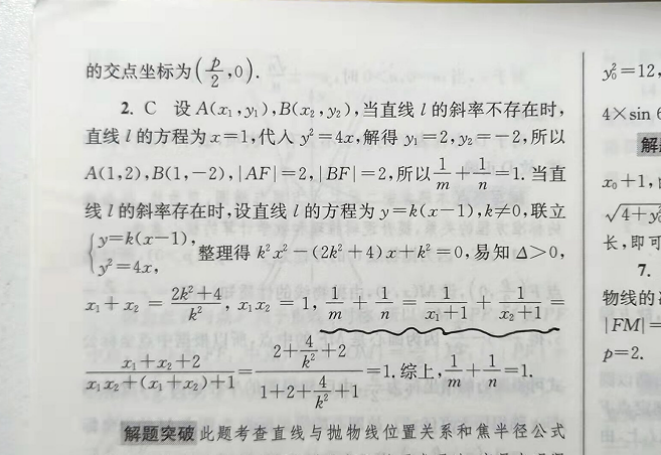 的交点坐标为(p/2,0).
2. C 设 A(x₁,y₁),B(x₂,y₂),当直线 l 的斜率不存在时,
直线 l 的方程为 x=1,代入 y²=4x,解得 y₁=2,y₂=-2,所以
A(1,2),B(1,-2),|AF|=2,|BF|=2,所以 1/m + 1/n =1. 当直
线 l 的斜率存在时,设直线 l 的方程为 y=k(x-1),k≠0,联立
{y=k(x-1),
y²=4x,
整理得 k²x²-(2k²+4)x+k²=0,易知 Δ>0,
x₁+x₂ = (2k²+4)/k² , x₁x₂ = 1, 1/m + 1/n = 1/(x₁+1) + 1/(x₂+1) =
(x₁+x₂+2)/(x₁x₂+(x₁+x₂)+1) = (2+4/k²+2)/(1+2+4/k²+1) =1. 综上, 1/m + 1/n =1.
解题突破 此题考查直线与抛物线位置关系和焦半径公式
y₀²=12,
4×sin
解
x₀+1,
长,即可
7.
物线的
|FM|=
p=2.